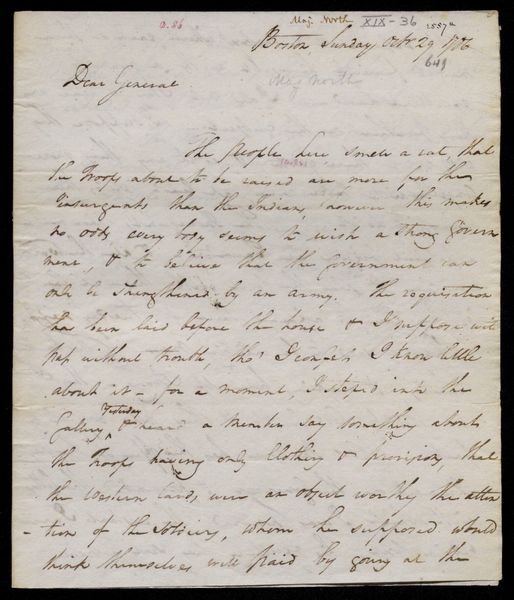 a. 86
Maj. North XIX-36 1557a
Boston, Sunday Octr 29 1786
649
Dear General
Maj North
The people here smell a rat, that
the Troops about to be raised are more for the
Insurgents than the Indians, however this makes
no odds every body seems to wish a strong Govern
ment, & to believe that the Government can
only be strengthened by an army. The requisition
has been laid before the house & I suppose will
pass without trouble, tho' I confess I know little
about it - for a moment, I steped into the
Yesterday
Gallery & heard a member say something about
the Troops having only Clothing & provision, that
the Western lands, were an object worthy the atten
tion of the Soldiery, whom he supposed would
think themselves well paid by going at the